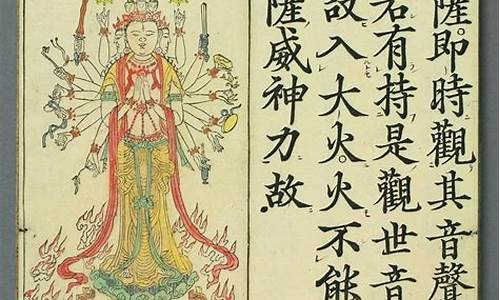 薩即時觀其音聲
若有持是觀世音
設入大火火不能
薩威神力故